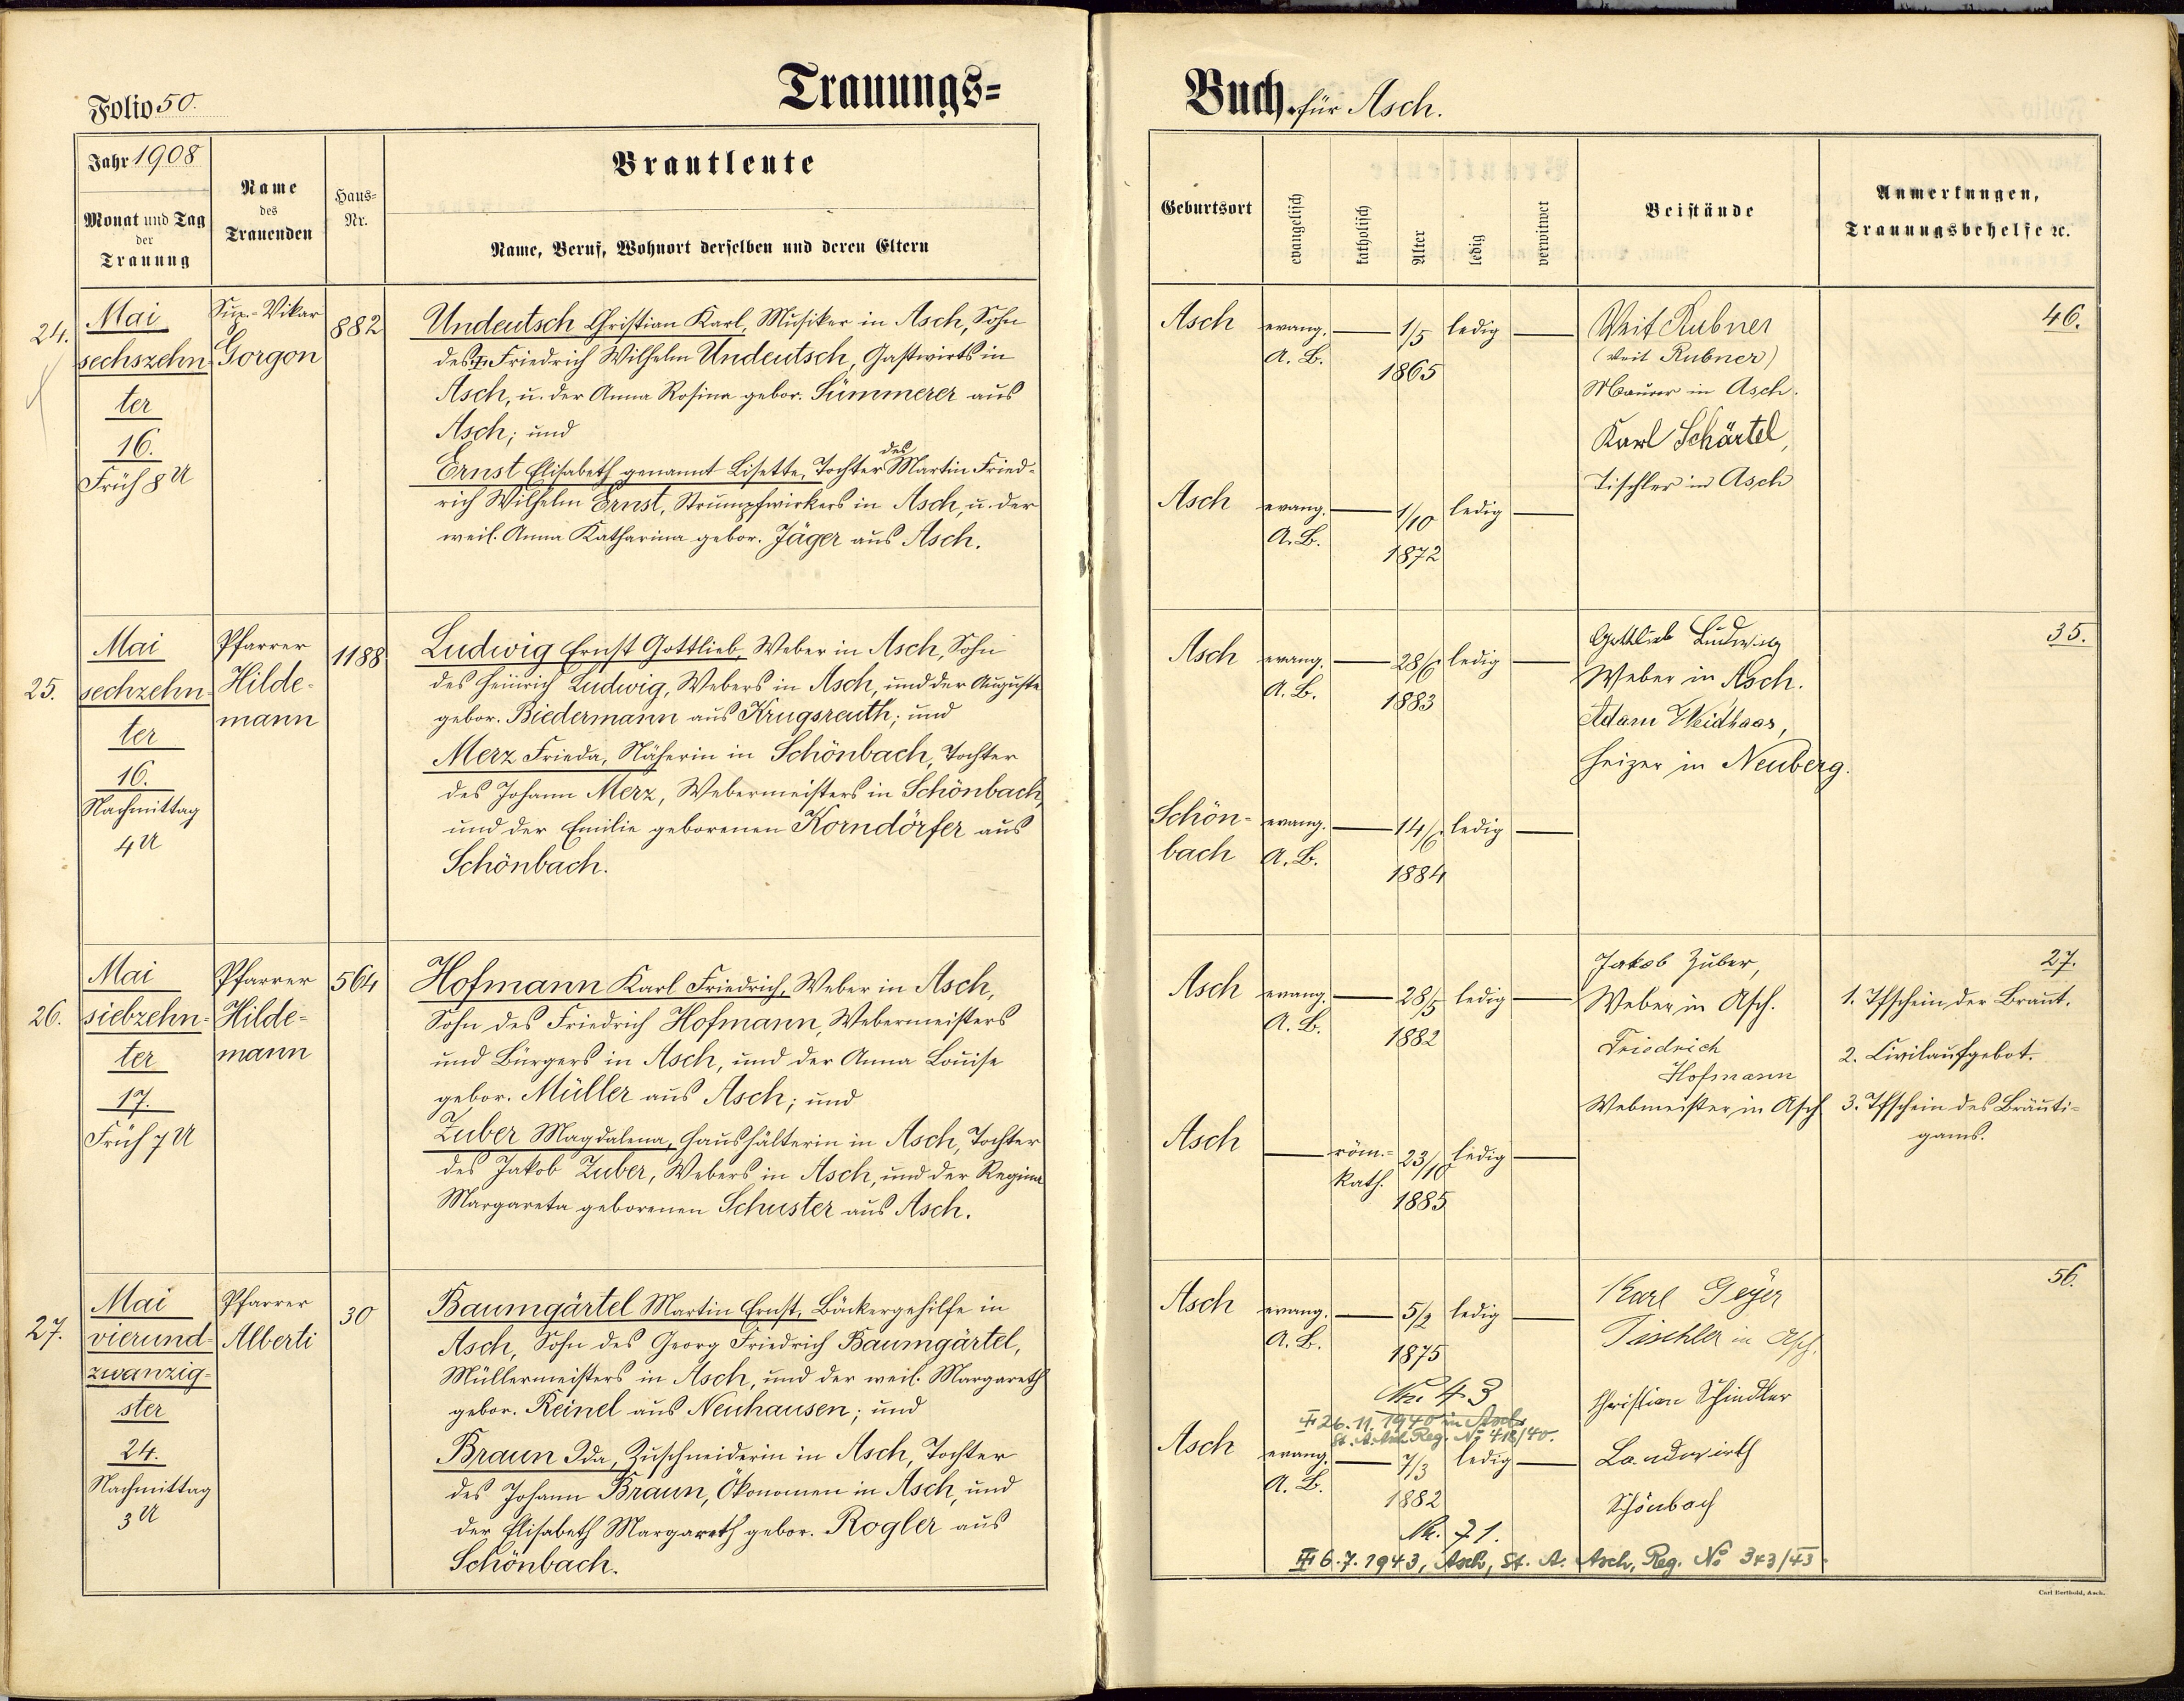 Folio 50.
Trauungs=
Jahr 1908
Monat und Tag
der
Trauung
Name
des
Trauenden
Haus=
Nr.
Brautleute
Name, Beruf, Wohnort derselben und deren Eltern
24.
Mai
sechszehn
ter
16.
Früh 8 U
Sup.-Vikar
Gorgon
882
Undeutsch Christian Karl, Musiker in Asch, Sohn
des Friedrich Wilhelm Undeutsch, Gastwirts in
Asch, u. der Anna Rosina gebor. Sümmerer aus
Asch; und
des
Ernst Elisabeth genannt Lisette, Tochter Martin Fried-
rich Wilhelm Ernst, Strumpfwirkers in Asch, u. der
weil. Anna Katharina gebor. Jäger aus Asch.
25.
Mai
sechzehn-
ter
16.
Nachmittag
4 U
Pfarrer
Hilde-
mann
1188
Ludwig Ernst Gottlieb, Weber in Asch, Sohn
des Heinrich Ludwig, Webers in Asch, und der Auguste
gebor. Biedermann aus Krugsreuth; und
Merz Frieda, Näherin in Schönbach, Tochter
des Johann Merz, Webermeisters in Schönbach,
und der Emilie geborenen Korndörfer aus
Schönbach.
26.
Mai
siebzehn-
ter
17.
Früh 7 U
Pfarrer
Hilde-
mann
564
Hofmann Karl Friedrich, Weber in Asch,
Sohn des Friedrich Hofmann, Webermeisters
und Bürgers in Asch, und der Anna Louise
gebor. Müller aus Asch; und
Zuber Magdalena, Haushälterin in Asch, Tochter
des Jakob Zuber, Webers in Asch, und der Regina
Margareta geborenen Schuster aus Asch.
27.
Mai
vierund-
zwanzig-
ster
24.
Nachmittag
3 U
Pfarrer
Alberti
30
Baumgärtel Martin Ernst, Bäckergehilfe in
Asch, Sohn des Georg Friedrich Baumgärtel,
Müllermeisters in Asch, und der weil. Margareth
gebor. Reinel aus Neuhausen; und
Braun Ida, Zuschneiderin in Asch, Tochter
des Johann Braun, Ökonomen in Asch, und
der Elisabeth Margareth gebor. Rogler aus
Schönbach.
Buch für Asch.
Geburtsort
evangelisch
katholisch
Alter
ledig
verwitwet
Beistände
Anmerkungen,
Trauungsbehelfe ꝛc.
Asch evang. 1/5 ledig
A. B.
1865
Asch evang. 1/10 ledig
A. B.
1872
Veit Rubner
(Veit Rubner)
Maurer in Asch.
Karl Schärtel,
Tischler in Asch
46.
Asch evang. 28/6 ledig
A. B. 1883
Schön- evang. 14/6 ledig
bach A. B.
1884
Gottlieb Ludwig
Weber in Asch.
Adam Weidhaas,
Heizer in Neuberg.
35.
Asch evang. 28/5 ledig
A. B. 1882
Asch röm.- 23/10 ledig
kath.
1885
Jakob Zuber,
Weber in Asch.
Friedrich
Hofmann
Webmeister in Asch
27.
1. Tfschein der Braut.
2. Civilaufgebot.
3. Tfschein des Bräuti-
gams.
Asch evang. 5/2 ledig
A. B.
1875
Nr. 43
26.11.1940 in Asch
St. A. Asch Reg. No 412/40.
Asch evang. 7/3 ledig
A. B.
1882
Nr. 71.
6.7.1943, Asch, St. A. Asch, Reg. No 343/43.
Karl Geyer
Tischler in Asch.
Christian Schindler
Landwirth
Schönbach
56.
Carl Berthold, Asch.